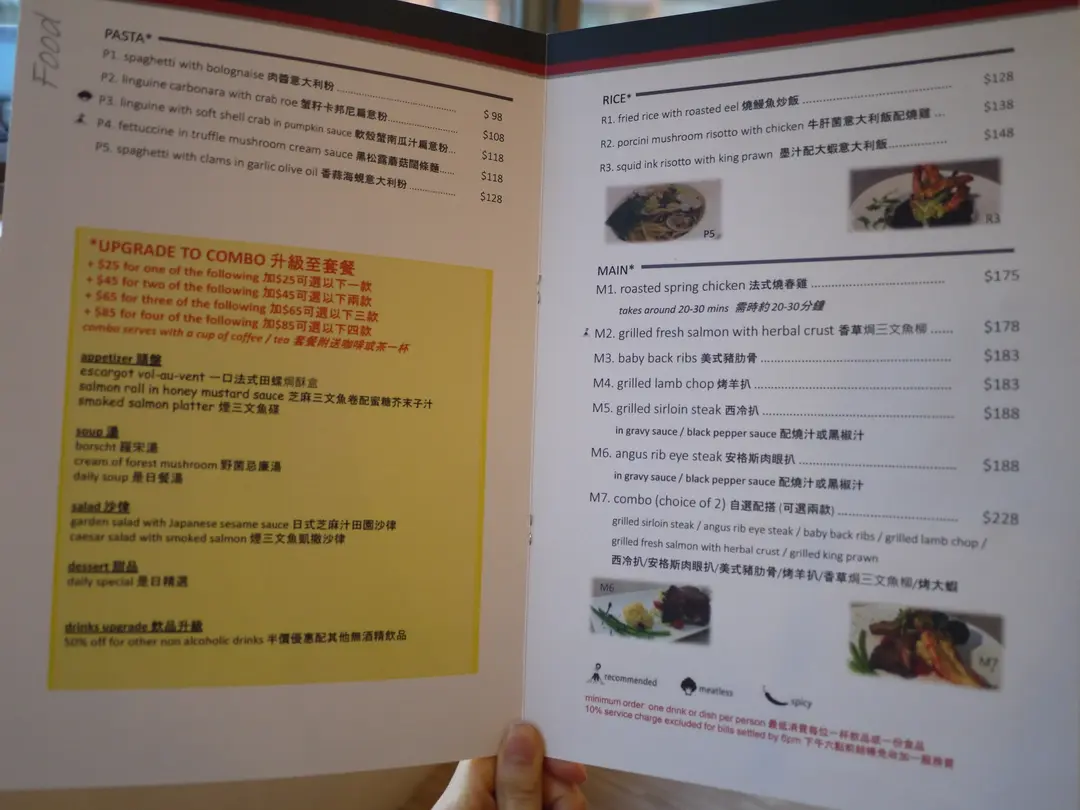 Food
PASTA*
P1. spaghetti with bolognaise 肉醬意大利粉 ........ $ 98
P2. linguine carbonara with crab roe 蟹籽卡邦尼扁意粉........ $108
P3. linguine with soft shell crab in pumpkin sauce 軟殼蟹南瓜汁扁意粉... $118
P4. fettuccine in truffle mushroom cream sauce 黑松露蘑菇闊條麵..... $118
P5. spaghetti with clams in garlic olive oil 香蒜海蜆意大利粉 ........ $128
*UPGRADE TO COMBO 升級至套餐
+ $25 for one of the following 加$25可選以下一款
+ $45 for two of the following 加$45可選以下兩款
+ $65 for three of the following 加$65可選以下三款
+ $85 for four of the following 加$85可選以下四款
combo serves with a cup of coffee / tea 套餐附送咖啡或茶一杯
appetizer 頭盤
escargot vol-au-vent 一口法式田螺焗酥盒
salmon roll in honey mustard sauce 芝麻三文魚卷配蜜糖芥末子汁
smoked salmon platter 煙三文魚碟
soup 湯
borscht 羅宋湯
cream of forest mushroom 野菌忌廉湯
daily soup 是日餐湯
salad 沙律
garden salad with Japanese sesame sauce 日式芝麻汁田園沙律
caesar salad with smoked salmon 煙三文魚凱撒沙律
dessert 甜品
daily special 是日精選
drinks upgrade 飲品升級
50% off for other non alcoholic drinks 半價優惠配其他無酒精飲品
RICE*
R1. fried rice with roasted eel 燒鰻魚炒飯 ........ $128
R2. porcini mushroom risotto with chicken 牛肝菌意大利飯配燒雞 ... $138
R3. squid ink risotto with king prawn 墨汁配大蝦意大利飯........ $148
P5
R3
MAIN*
M1. roasted spring chicken 法式燒春雞 ........ $175
takes around 20-30 mins 需時約 20-30分鐘
M2. grilled fresh salmon with herbal crust 香草焗三文魚柳 ...... $178
M3. baby back ribs 美式豬肋骨 ........ $183
M4. grilled lamb chop 烤羊扒 ........ $183
M5. grilled sirloin steak 西冷扒 ........ $188
in gravy sauce / black pepper sauce 配燒汁或黑椒汁
M6. angus rib eye steak 安格斯肉眼扒 ........ $188
in gravy sauce / black pepper sauce 配燒汁或黑椒汁
M7. combo (choice of 2) 自選配搭 (可選兩款) ........ $228
grilled sirloin steak / angus rib eye steak / baby back ribs / grilled lamb chop /
grilled fresh salmon with herbal crust / grilled king prawn
西冷扒/安格斯肉眼扒/美式豬肋骨/烤羊扒/香草焗三文魚柳/烤大蝦
M6
M7
recommended
meatless
spicy
minimum order one drink or dish per person 最低消費每位一杯飲品或一份食品
10% service charge excluded for bills settled by 6pm 下午六點前結帳免收加一服務費